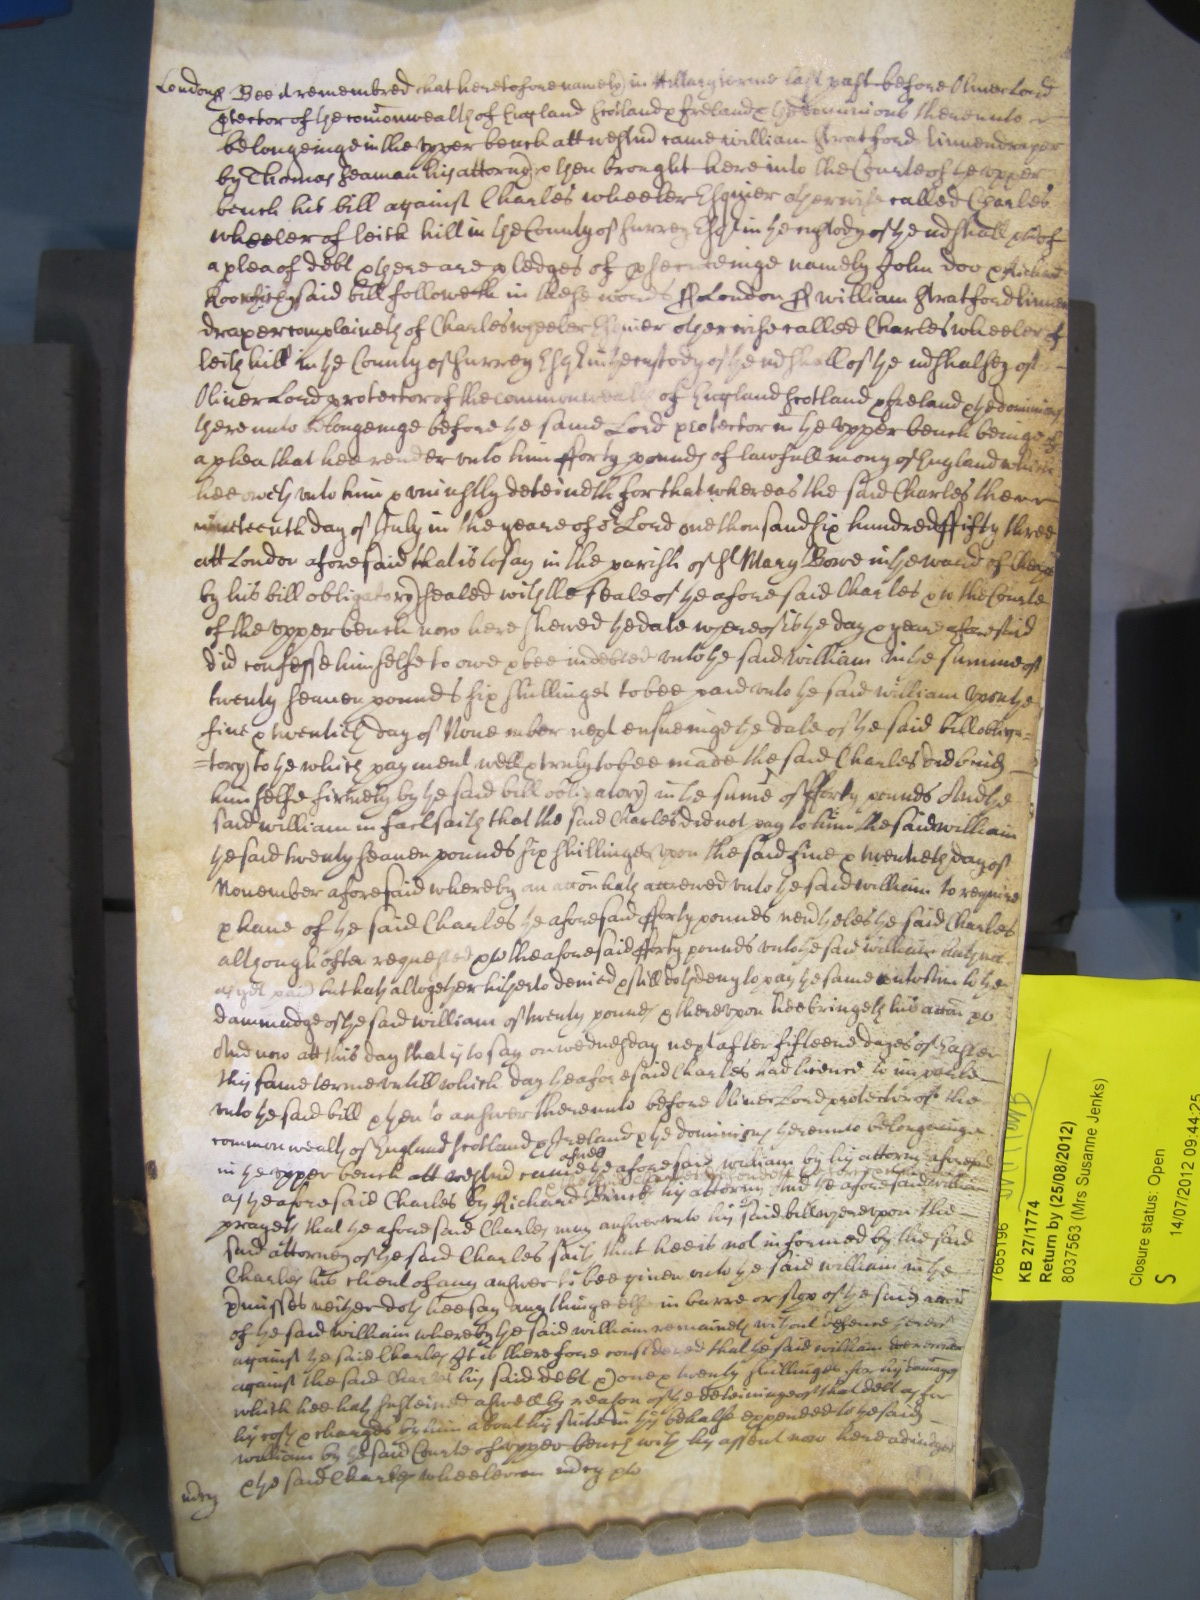 London ss Bee it remembred that heretofore namely in Hillary terme last past before Oliver Lord
Ptector of the comonwealth of England Scotland & Ireland & the dominions thereunto
belongeinge in the upper bench att westmr came william Stratford linnendraper
by Thomas Seaman his attorny & then brought here into the Courte of the upper
bench his bill against Charles wheeler Esquier otherwise called Charles
wheeler of leith hill in the County of Surrey Esqr in the custody of the mdshall &c of
a plea of debt & there are pledges of &secuteinge namely John doo & Richard
Roo which said bill followeth in these words ss London ss william Stratford linnen
draper complaineth of Charles wheeler Esquier otherwise called Charles wheeler of
leith hill in the County of Surrey Esqr in the custody of the mdshall of the mdshalsey of
Oliver Lord protector of the commonwealth of England Scotland & Ireland & the dominions
thereunto belongeinge before the same Lord protector in the upper bench beinge of
a plea that hee render unto him fforty pounds of lawfull mony of England which
hee oweth unto him & uniustly deteineth for that whereas the said Charles the
nineteenth day of July in the yeare of or Lord one thousand six hundred fifty three
att London aforesaid that is to say in the parish of St Mary Bowe in the ward of Cheape
by his bill obligatory sealed with the seale of the aforesaid Charles & to the Courte
of the upper bench now here shewed the date whereof is the day & yeare aforesaid
did confesse himselfe to owe & bee indebted unto the said william in the summe of
twenty seaven pounds six shillinges to bee paid unto the said william upon the
five & twentieth day of November next ensueinge the date of the said bill obliga=
=tory to the which payment well & truly to bee made the said Charles did binde
himselfe firmely by the said bill obligatory in the sume of fforty pounds And the
said william in fact saith that the said Charles did not pay to him the said william
the said twenty seaven pounds six shillinges upon the said five & twentieth day of
November aforesaid whereby an accon hath accrewed unto the said william to require
& have of the said Charles the aforesaid fforty pounds neverthelesse the said Charles
although often requested &c the aforesaid fforty pounds unto the said william hath not
as yet paid but hath altogether hitherto denied & still doth deny to pay the same unto him to the
dammadge of the said william of twenty pounds & thereupon hee bringeth his accon &c
And now att this day that is to say on wednesday next after fifteene dayes of Easter
this same terme untill which day the aforesaid Charles had licence to imparle
unto the said bill & then to answer thereunto before Oliver Lord protector of the
commonwealth of England Scotland & Ireland & the dominions thereunto belongeinge
in the upper bench att westmr came the aforesaid william by his attorny aforesaid
as the aforesaid Charles by Richard his attorny And the aforesaid william
prayeth that the aforesaid Charles may answer unto his said bill whereupon the
said attorney of the said Charles saith that hee is not informed by the said
Charles his client of any answer to bee given unto the said william in the
Pmisses neither doth hee say any thinge else in barre or stop of the said accon
of the said william whereby the said william remaineth without defence
against the said Charles It is therefore considered that the said william doe recover
against the said Charles his said debt & one & twenty shillinges for his dammages
which hee hath susteined aswell by reason of the deteininge of that debt as for
his costs & charges by him about his suite in this behalfe expended to the said
william by the said Courte of upper bench with his assent now here adiudged
& the said Charles wheeler in mdcy &c
mdcy
7665196
KB 27/1774
Return by (25/08/2012)
8037563 (Mrs Susanne Jenks)
Closure status: Open
S 14/07/2012 09:44:25